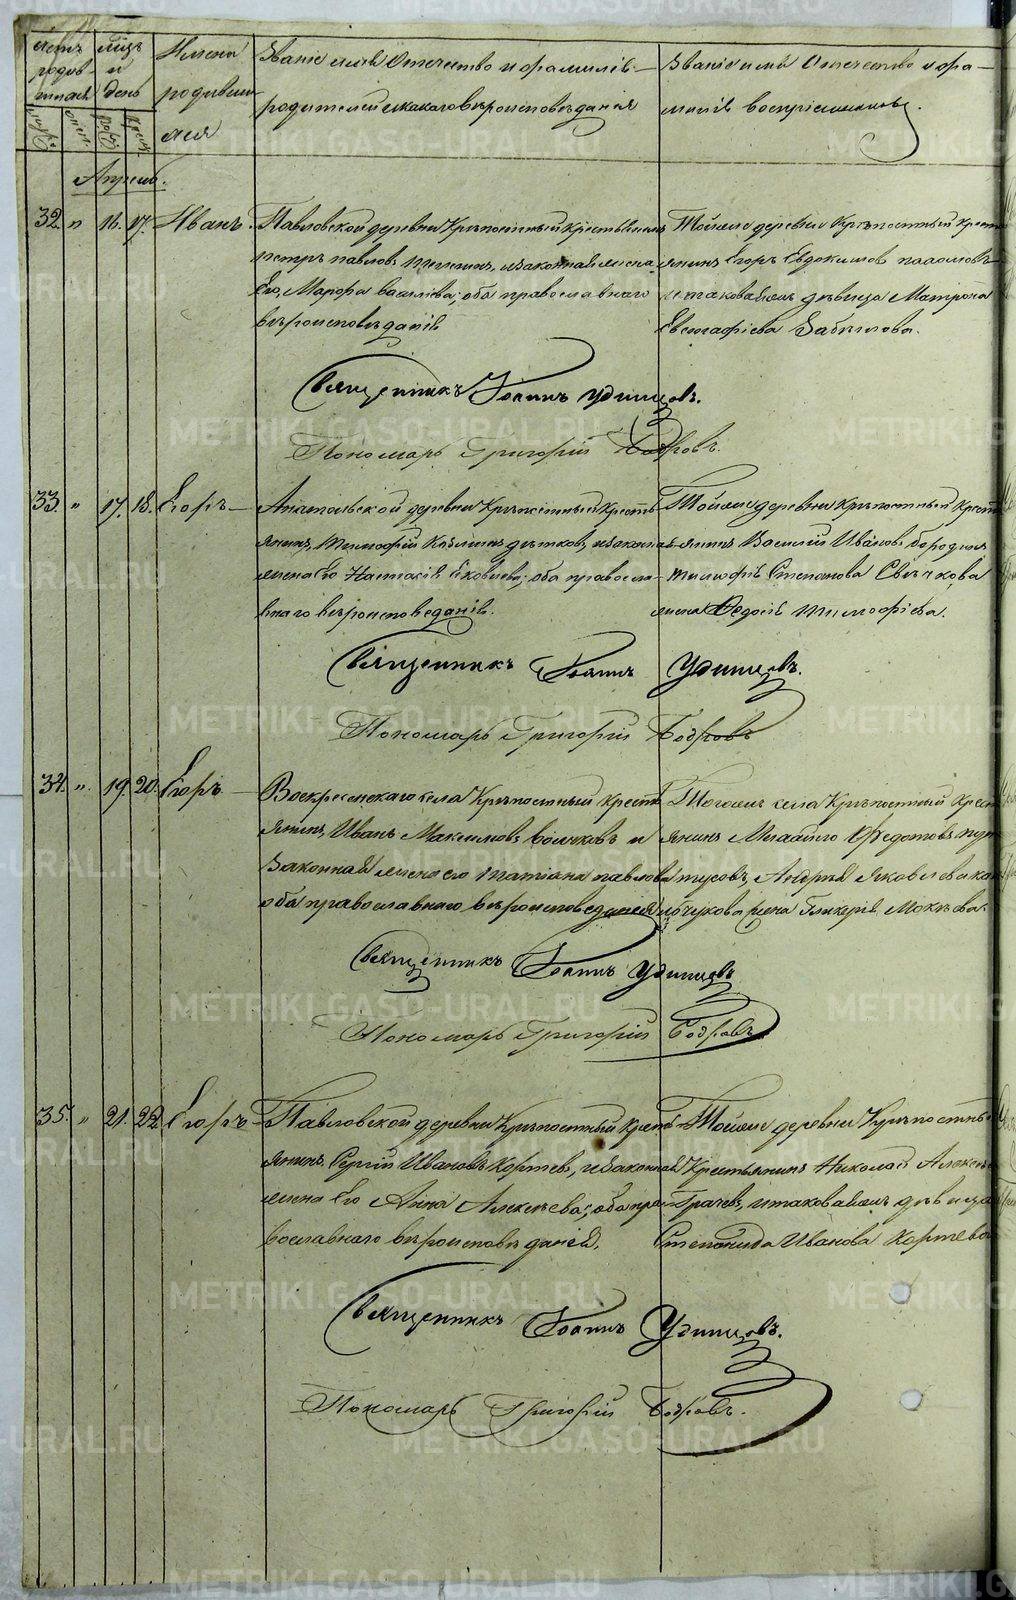 Счетъ родившихся
Мѣсяцъ и день
Имена родившихся
Званіе имя Отечество и фамилія родителей и какого вѣроисповѣданія
Званіе имя Отечество и фамилія воспріемниковъ.
Апрель.
32. " 16. 17. Иванъ.
Павловской деревни Крѣпостный крестьянинъ
Петръ Павловъ, и законная жена
Его, Марфа Васильева; оба православнаго
вѣроисповѣданія
Той же деревни Крѣпостный крестьянинъ Егоръ Евдокимовъ
и таковой же дѣвица Матрона
Евстафіева
Священникъ Іоаннъ Удинцовъ.
Пономарь Григорій Бобровъ.
33. " 17. 18. Егоръ
деревни Крѣпостный крестьянинъ, Тимофѣй
и законная
жена Его Настасія Яковлева; оба православнаго вѣроисповеданія.
Той же деревни Крѣпостный крестьянинъ Василій Ивановъ Бородинъ
Тимофѣя Степанова Свѣчкова
жена Федосія Тимофѣева.
Священникъ Іоаннъ Удинцовъ.
Пономарь Григорій Бобровъ
34. " 19. 20. Егоръ
Воскресенскаго села Крѣпостный крестьянинъ, Иванъ Максимовъ Волчковъ и
Законная жена его Татіана Павлова
оба православнаго вѣроисповеданія
Тогоже села Крѣпостный крестьянинъ Михайло Федотовъ
Андрея Яковлева
жена Гликерія Мокѣева.
Священникъ Іоаннъ Удинцовъ
Пономарь Григорій Бобровъ.
35. " 21. 22. Егоръ
Павловской деревни Крѣпостный крестьянинъ, Сергій Ивановъ Кортевъ, и законная
жена Его Анна Алексѣева; оба православнаго вѣроисповѣданія.
Той же деревни Крѣпостный
Крестьянинъ Николай Алексѣевъ
Грачевъ, и таковой же дѣвица
Степанида Иванова Кортева
Священникъ Іоаннъ Удинцовъ.
Пономарь Григорій Бобровъ.
METRIKI.GASO-URAL.RU